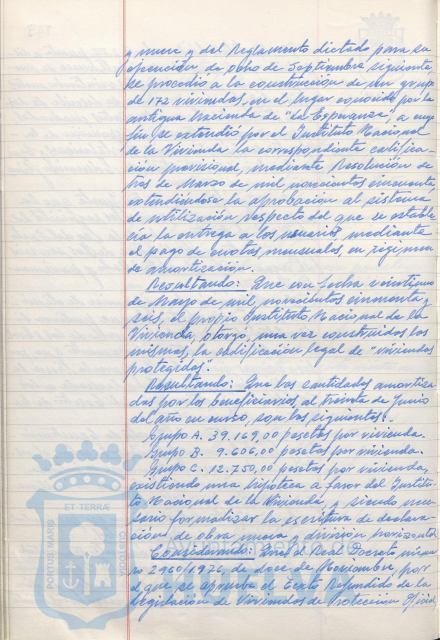 y nueve y del Reglamento dictado para su
ejecución, de ocho de Septiembre siguiente,
se procedió a la construcción de un grupo
de 172 viviendas, en el lugar conocido por la
antigua hacienda de "La Esperanza", a cuyo
fin, se extendió por el Instituto Nacional
de la Vivienda la correspondiente califica-
ción provisional, mediante Resolución de
tres de Marzo de mil novecientos cincuenta
extendiéndose la aprobación al sistema
de utilización respecto del que se estable
cía la entrega a los usuarios, mediante
el pago de cuotas mensuales, en régimen
de amortización.
Resultando: Que con fecha veintiuno
de Marzo de mil novecientos cincuenta y
seis, el propio Instituto Nacional de la
Vivienda, otorgó, una vez construidos los
mismos, la calificación legal de "viviendas
protegidas".
Resultando: Que las cantidades amortiza
das por los beneficiarios, al treinta de Junio
del año en curso, son las siguientes:
Grupo A. 39.169,00 pesetas por vivienda.
Grupo B. 9.606,00 pesetas por vivienda.
Grupo C. 12.750,00 pesetas por vivienda,
existiendo una hipoteca a favor del Institu-
to Nacional de la Vivienda y siendo nece
sario formalizar la escritura de declara
ción de obra nueva y división horizontal
Considerando: Que el Real Decreto núme
ro 2960/1976, de doce de Noviembre, por
el que se aprueba el Texto Refundido de la
Legislación de Viviendas de Protección Oficial
ET TERRÆ
PORTUS MARIS
CUSTODIA